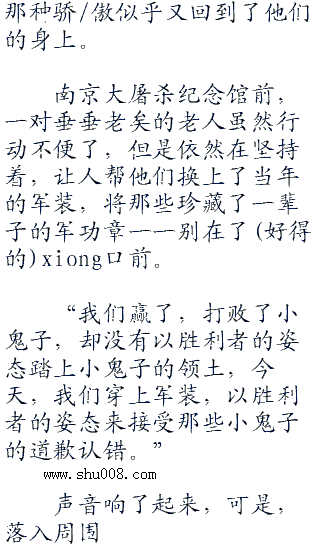 那种骄/傲似乎又回到了他们
的身上。
南京大屠杀纪念馆前,
一对垂垂老矣的老人虽然行
动不便了, 但是依然在坚持
着, 让人帮他们换上了当年
的军装, 将那些珍藏了一辈
子的军功章一一别在了(好得
的)xiong口前。
“我们赢了, 打败了小
鬼子, 却没有以胜利者的姿
态踏上小鬼子的领土, 今
天, 我们穿上军装, 以胜利
者的姿态来接受那些小鬼子
的道歉认错。”
www.shu008.com
声音响了起来, 可是,
落入周围